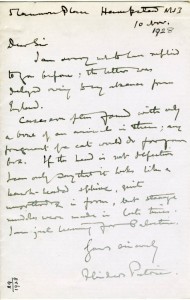 Cannon Place Hampstead NW3
10 Nov. 1928
Dear Sir
I am sorry not to have replied
to you before; the letter was
delayed owing my absence from
England.
Cases are often found with only
a bone of an animal in them; any
fragment of cat would do for a
box. If the head is not defective
I can only say that it looks like a
hawk-headed sphinx, quite
in form, but strange
were made in late times.
I am just leaving for Palestine
Yours sincerely
Flinders Petrie
1928